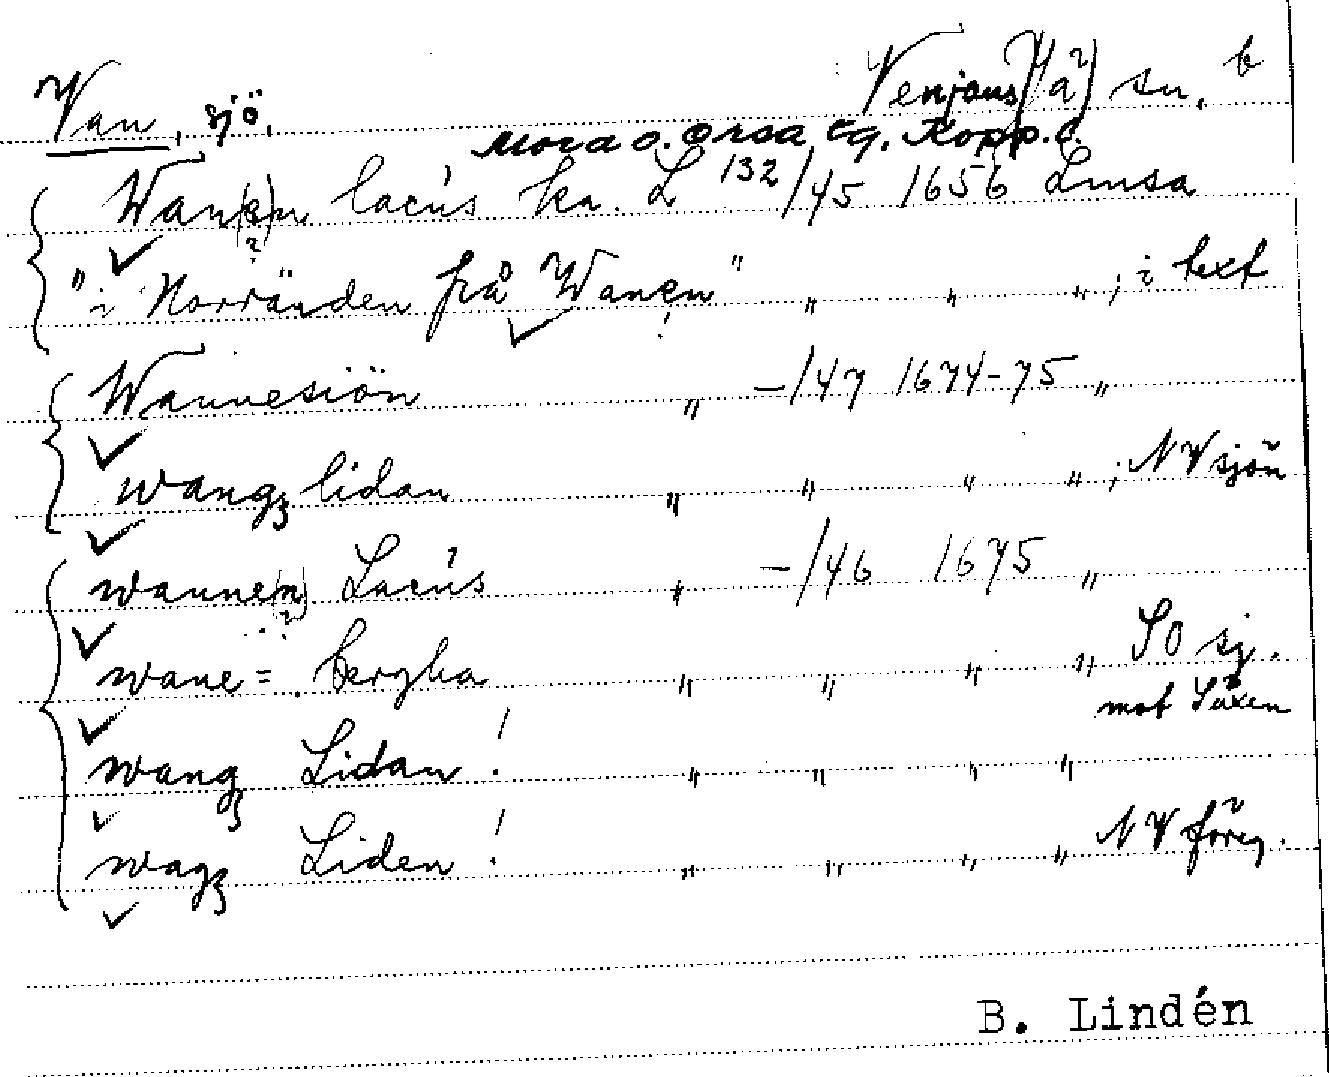 Van, sjö. Venjans (Vä) sn. b
Mora o. Orsa tg. Kopp. l.
Wan(e)n lacus ka. L 132/45 1656 Lmsa
(?)
"i Norränden från Wanen" " " " ; i text
!
Wannesiön " –/47 1674-75 "
wangz lidan " " " " ; NV sjön
wanne(n) Lacus " –/46 1675 "
?
wane= bergha " " " " SO sj.
mot Säxen
wangz Lidan! " " " "
wagz Liden! " " " " NV föreg.
B. Lindén